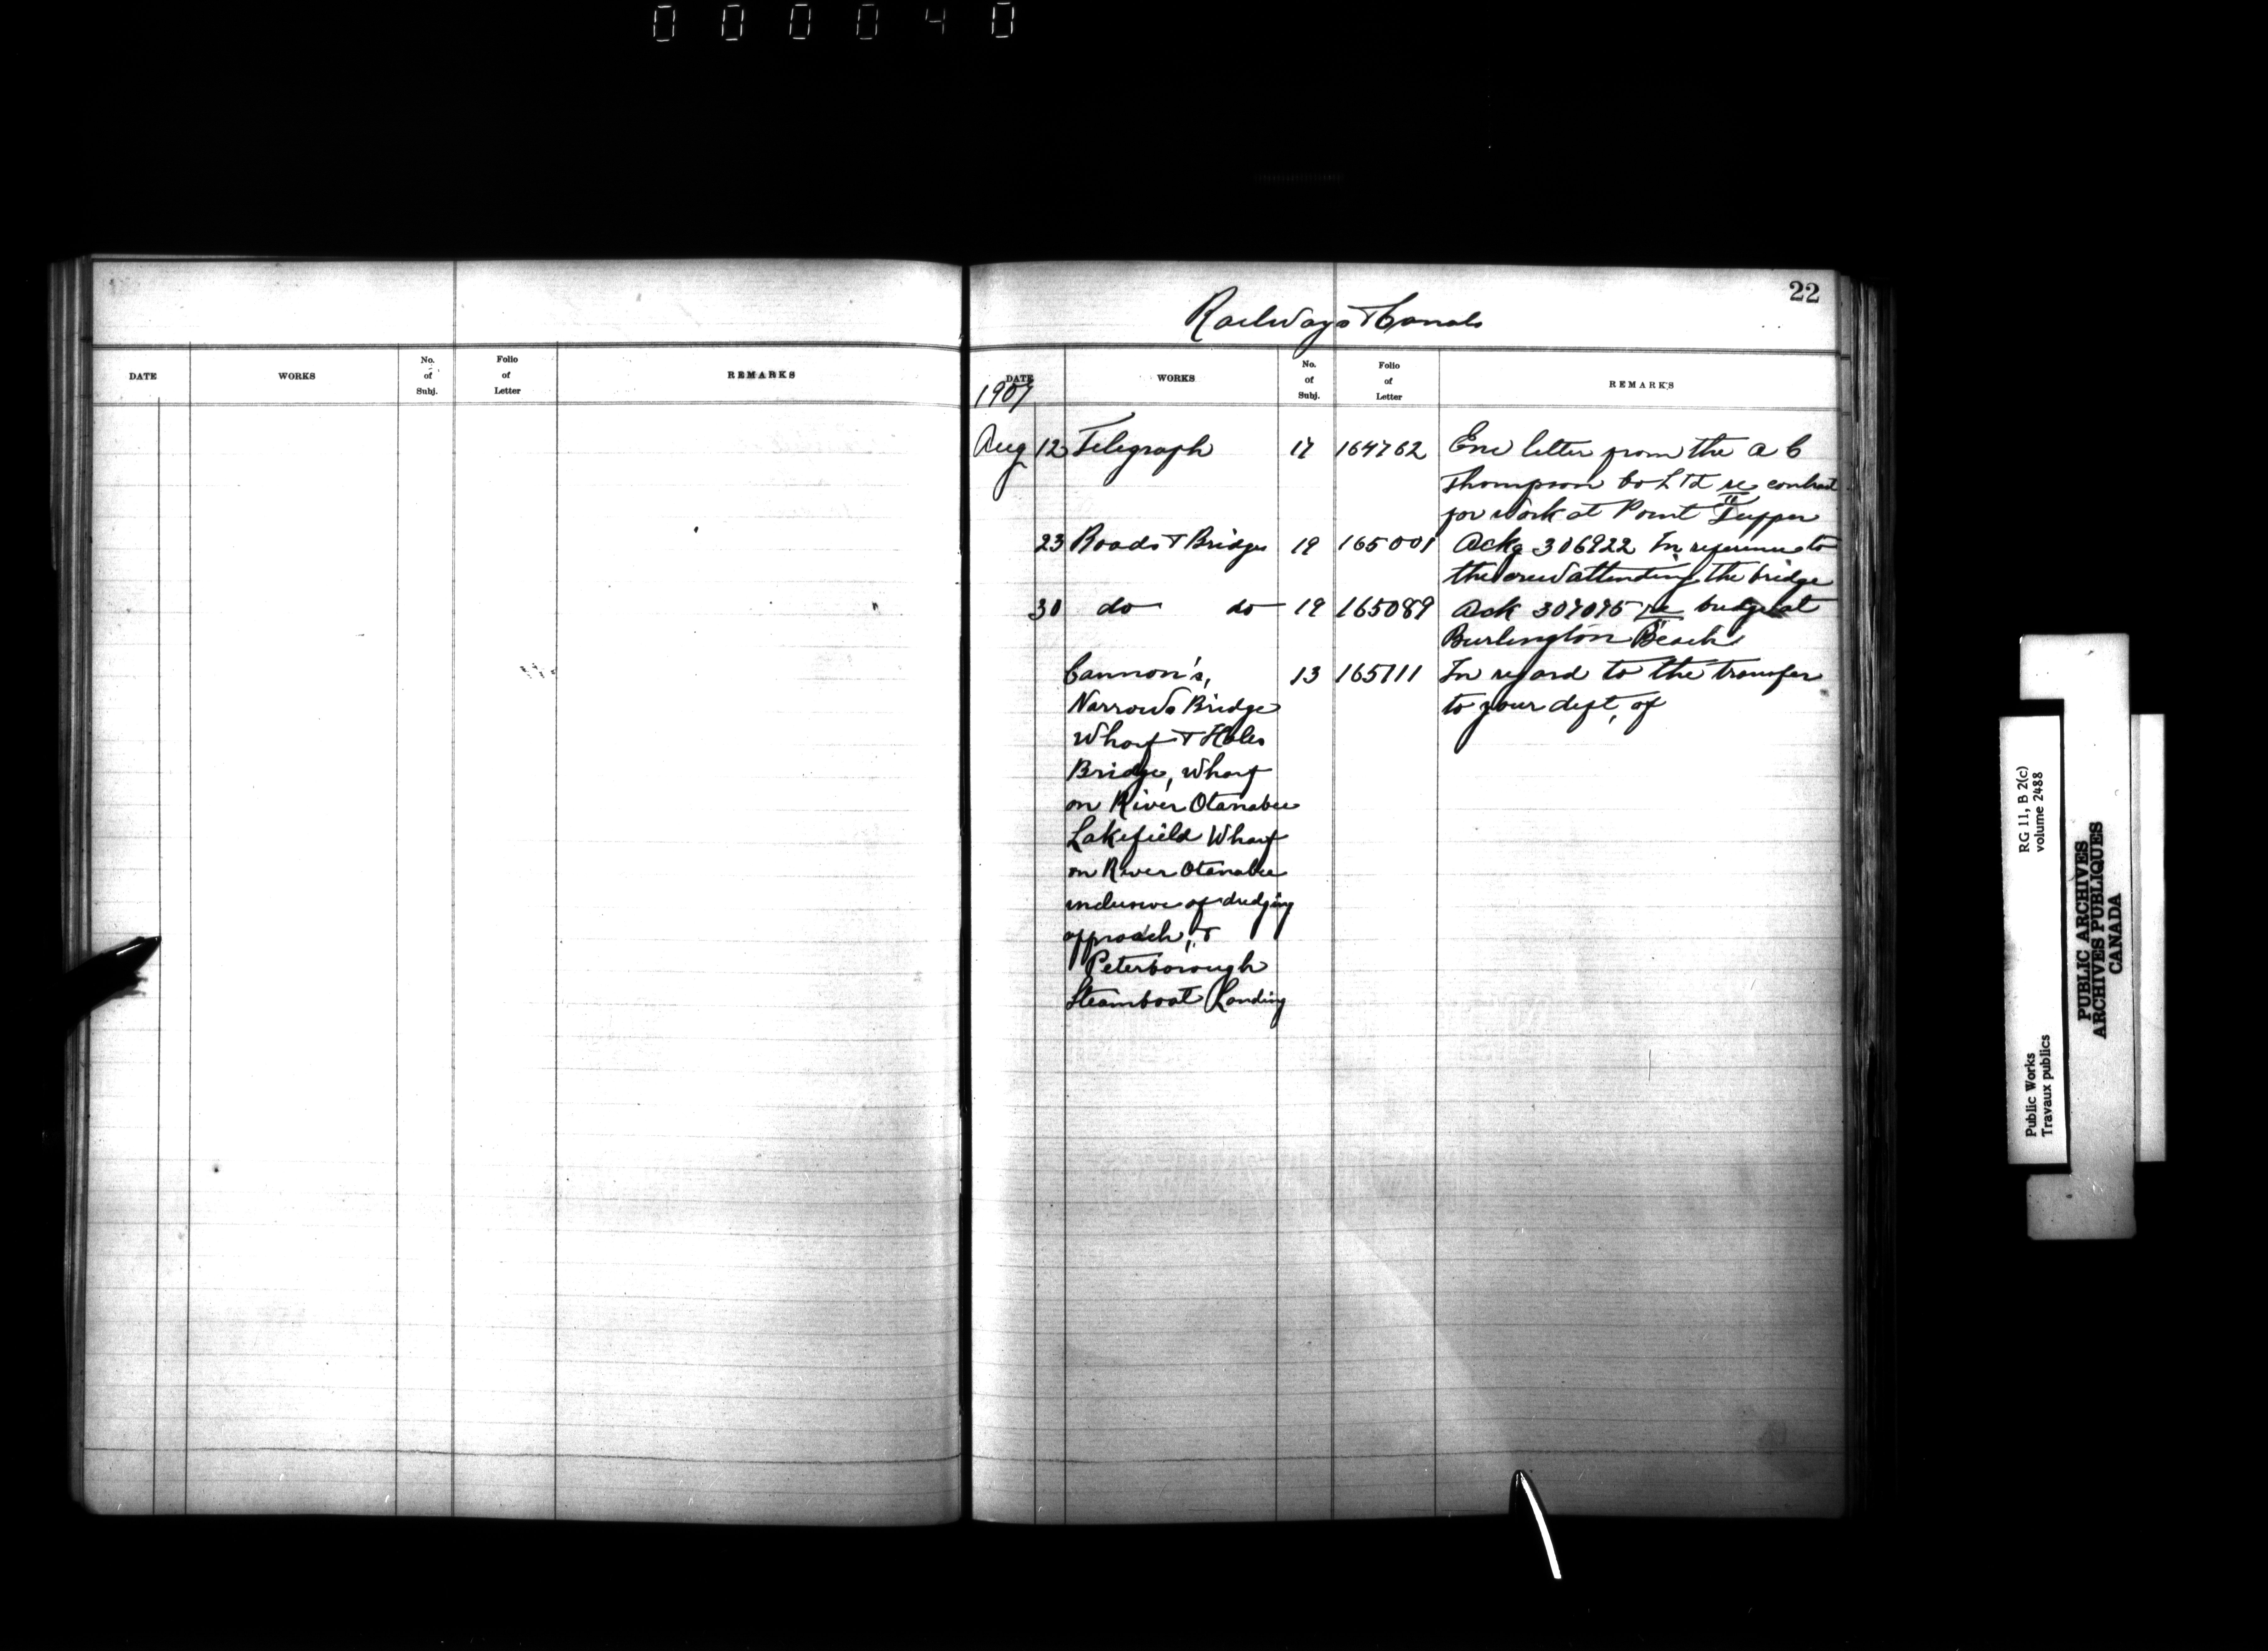 000040
22
Railways & Canals
DATE WORKS No. of Subj. Folio of Letter REMARKS
DATE WORKS No. of Subj. Folio of Letter REMARKS
1907
Aug 12 Telegraph 17 164762 Enc letter from the A C
Thompson Co Ltd re contract
for work at Point Tupper
23 Roads & Bridges 19 165001 Ackg 306922 In reference to
the crew attending the bridge
30 do do 19 165089 Ack 307075 re bridge at
Burlington Beach
Cannon's, 13 165111 In regard to the transfer
Narrows Bridge to your dept, of
Wharf & Holes
Bridge, Wharf
on River Otanabee
Lakefield Wharf
on River Otanabee
inclusive of dredging
approach, &
Peterborough
Steamboat Landing
RG 11, B 2(c)
volume 2488
Public Works
Travaux publics
PUBLIC ARCHIVES
ARCHIVES PUBLIQUES
CANADA